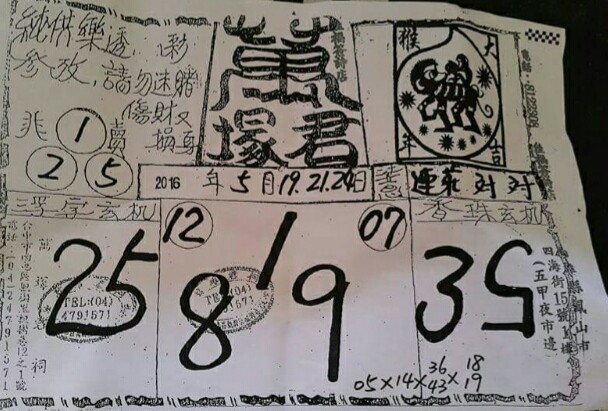 純供樂透彩
參攷,請勿迷賭
傷財又
損身
兆 1 賣
2 5
萬
塚君
猴 大
年 吉
2016 年5月19.21.24日 連莊 对 对
浮字玄机
12 07
香珠玄机
25
8 1 9
35
TEL:(04)
4791571
萬塚君祠
四海街15號
(五甲夜市邊)
鳳山市
05×14×36×18
43 19